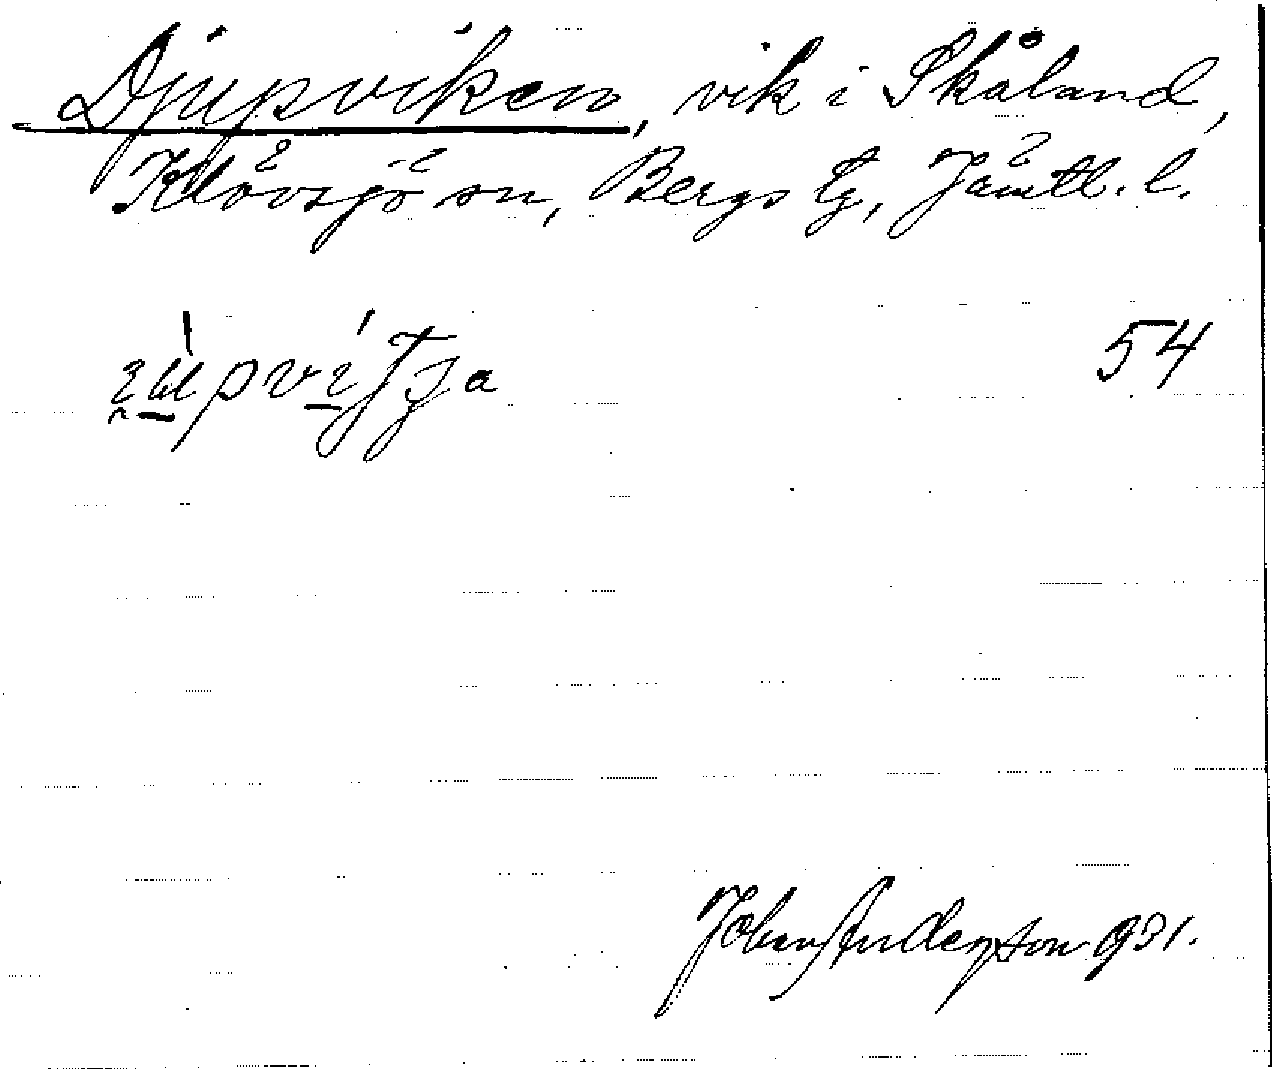 Djupviken, vik i Skåland,
Klövsjö sn, Bergs tg, Jämtl. l.
54
Johan Anderson 931.